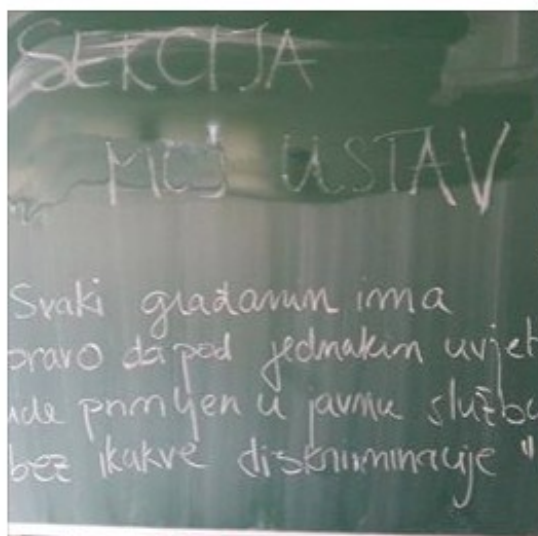 SEKCIJA
MOJ USTAV
Svaki građanin ima
pravo da pod jednakim uvjet
ude primljen u javnu službu
bez ikakve diskriminacije "